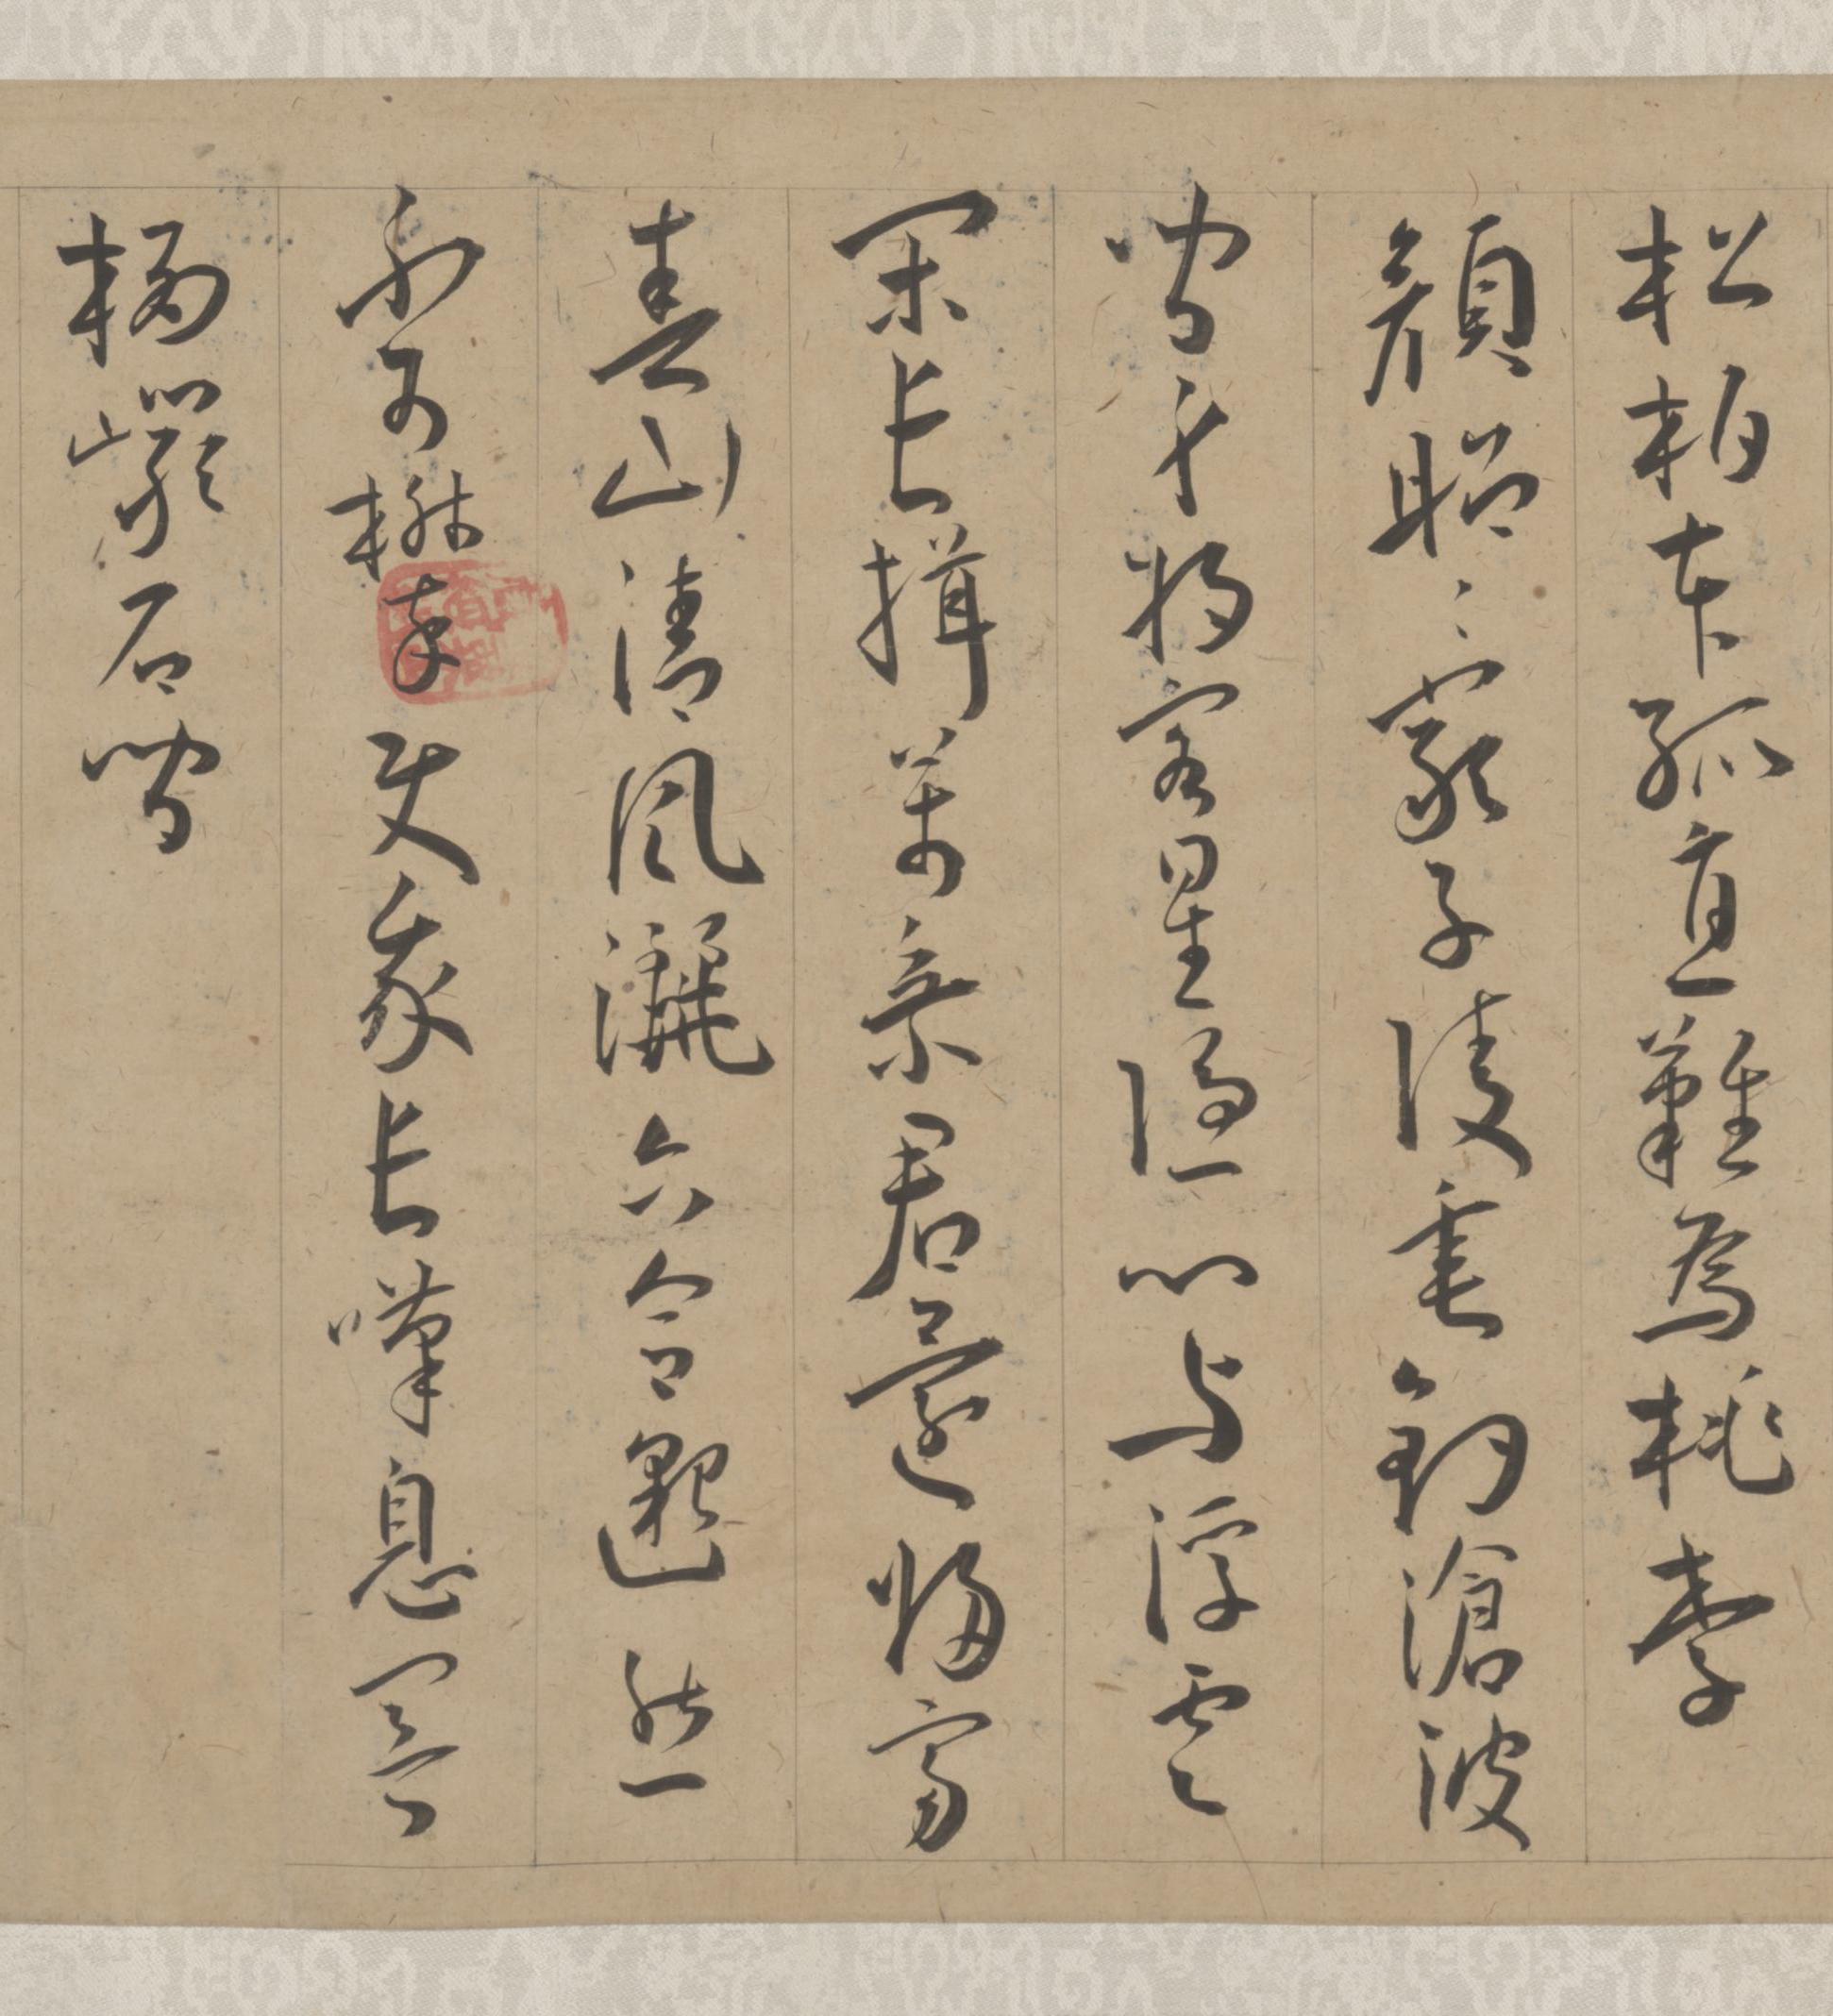 松柏本孤直難為桃李
顏昭〻嚴子陵垂釣滄波
間身將客星隱心与浮雲
閑長揖萬乘君還歸富
春山清風灑六合邈然
不可攀使我長嘆息冥
栖巖石間